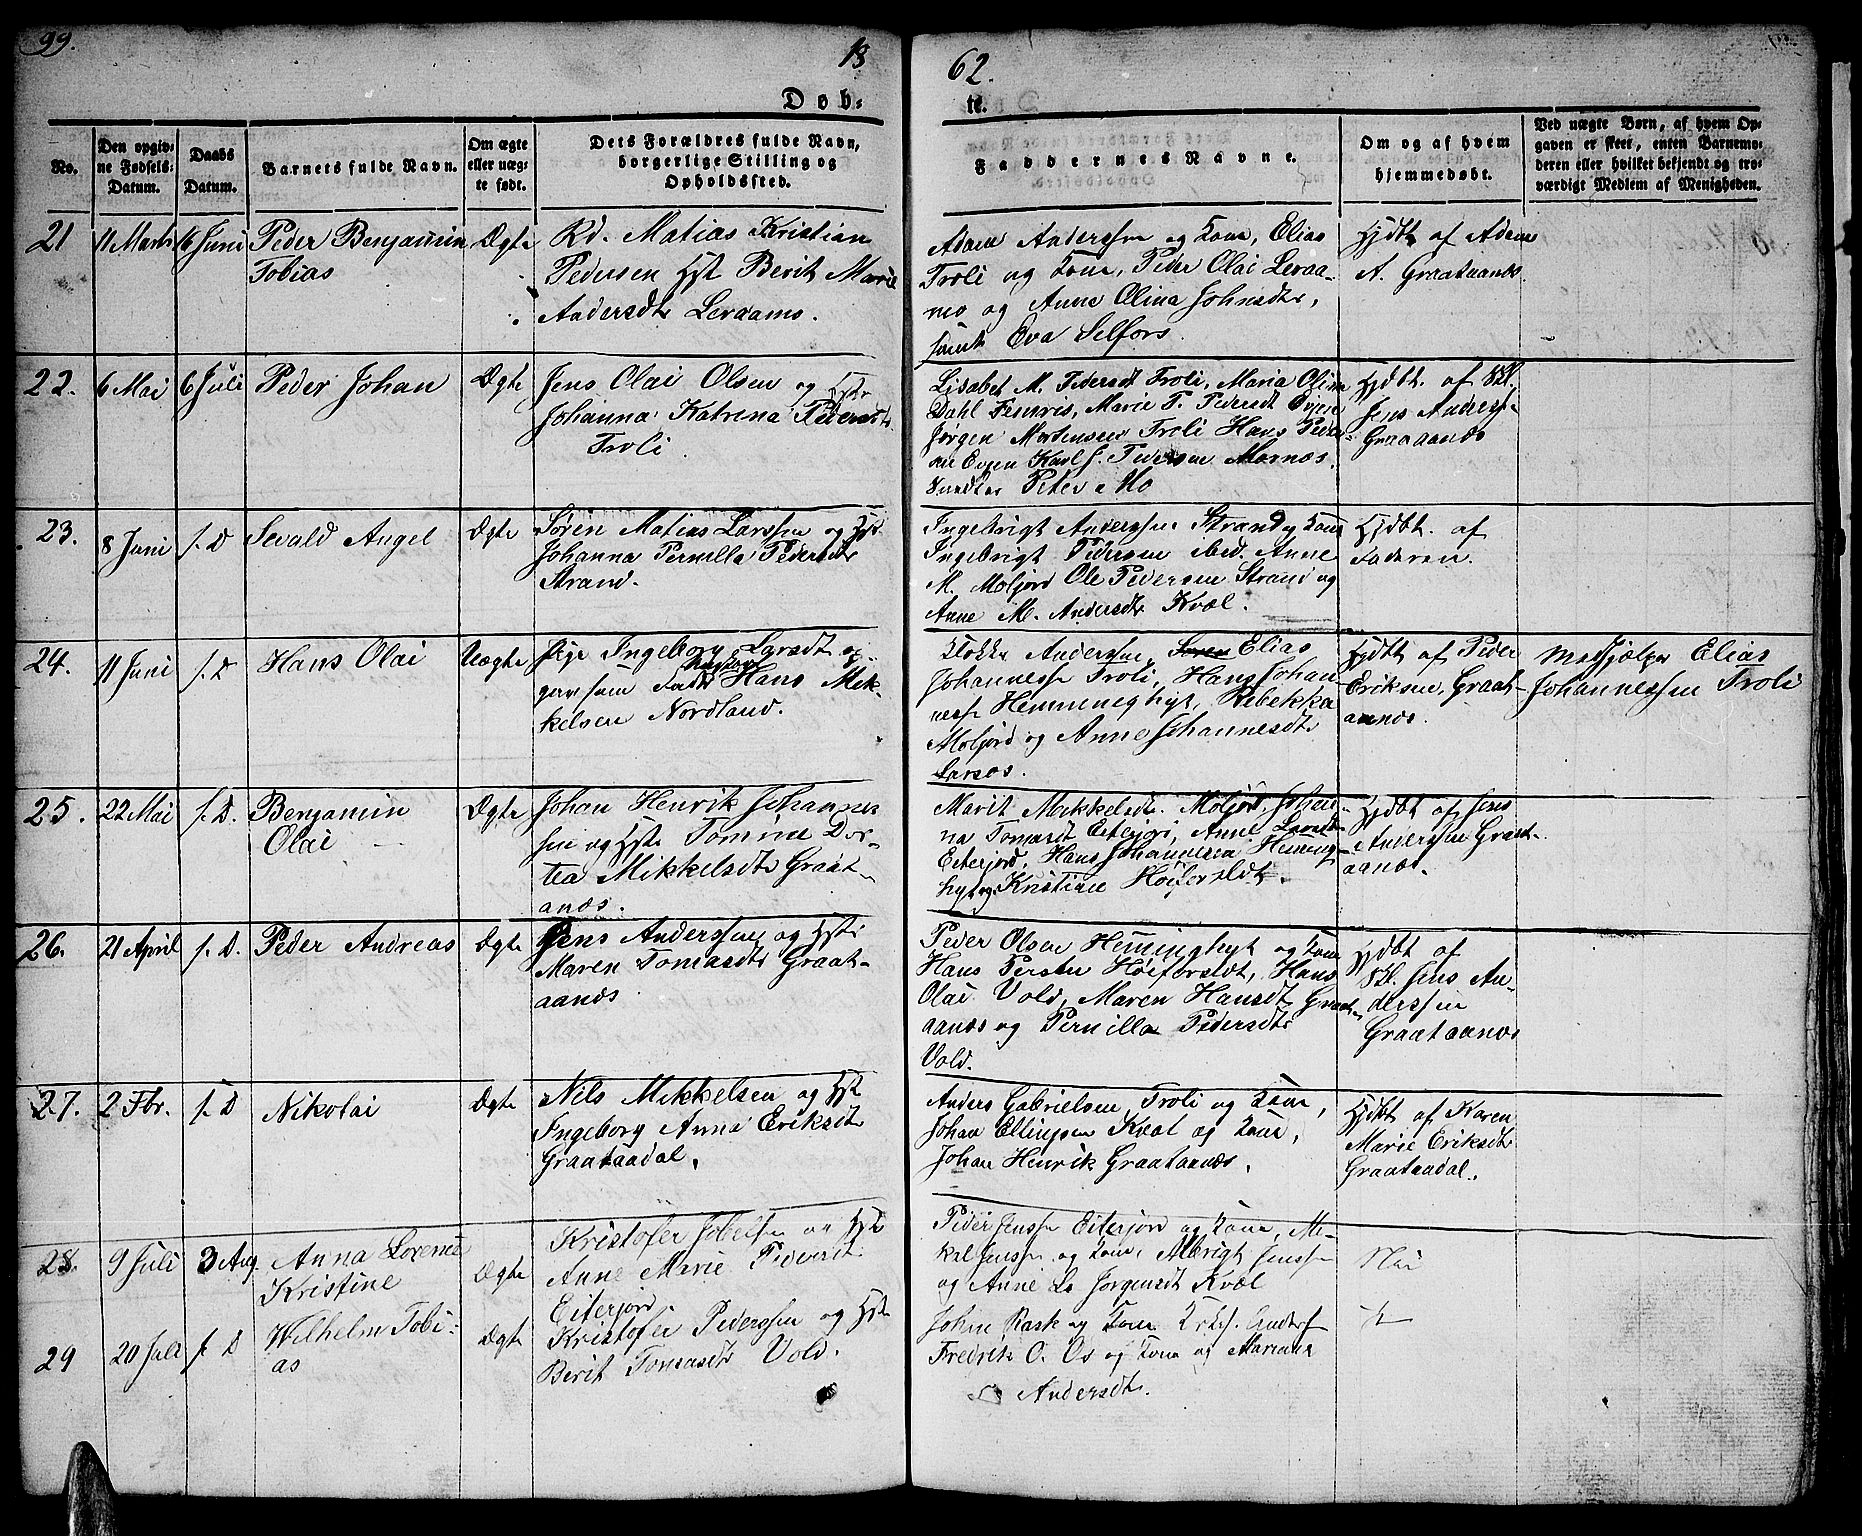 99.
18
62.
Døb-
te.
No.
Den opgiv-
ne Fødsels-
Datum.
Daabs
Datum.
Barnets fulde Navn.
Om ægte
eller uæg-
te født.
Dets Forældres fulde Navn,
borgerlige Stilling og
Opholdssted.
Faddernes Navne.
Om og af hvem
hjemmedøbt.
Ved uægte Børn, af hvem Op-
gaven er skeet, enten Barnemo-
deren eller hvilket bekjendt og tro-
værdigt Medlem af Menigheden.
21
11 Marts
16 Juni
Peder Benjamin
Tobias
Ægte
Rd. Matias Kristian
Pedersen Hst Berit Marie
Andersdtr Leraamo.
Adam Anderssen og Kone, Elias
Troli og Kone, Peder Olai Leraa-
mo og Anne Olina Johnsdtr,
samt Eva Selfors.
Hjdbt af Adam
A. Graataanæs
22.
6 Mai
6 Juli
Peder Johan
Ægte
Jens Olai Olsen og Hstr
Johanna Katrena Pedersdtr
Troli
Lisabet M. Pedersdt Troli, Maria Olina
Dahl Fenvris, Marie P. Pedersdt Evjen
Jørgen Mortensen Troli Hans Peder-
sen Evjen Karl J. Pedersen Marnæs.
Peter Mo
Hjdbt. af Skl.
Jens Anders-
Graataanæs
23.
8 Juni
s. D
Sevald Angel
Ægte
Søren Matias Larssen og Hst
Johanna Pernilla Pedersdtr
Strand.
Ingebrigt Anderssen Strand og Kone
Ingebrigt Pedersen ibed. Anne
M. Moljord Ole Pedersen Strand og
Anne M. Andersdtr Kvæl.
Hjdbt. af
Faderen.
24.
11 Juni
s. D
Hans Olai
Uægte
Pige Ingeborg Larsdt op-
giver som Fader Ungkarl Hans Mik-
kelsen Nordland.
Klokker Anderssen, Søren Elias
Johannessen Troli, Hans Johan-
nessen Hemminghyt, Rebekka
Moljord og Anne Johannesdtr
Larsos.
Hjdbt af Peder
Eriksen, Graat-
aanæs.
Medhjælper Elias
Johannessen Troli
25.
22 Mai
s. D.
Benjamin
Olai
Ægte
Johan Henrik Johannes-
sen og Hstr Tomine Dor-
tea Mikkelsdtr Graat-
anæs.
Marit Mikkelsdt. Moljord, Johan-
na Tomasdt Eiterjord, Anne Larsdt
Eiterjord, Hans Johannessen Heming-
hyt og Kristine Høiforsldt.
Hjdbt af Jens
Anderssen Graat-
aanæs.
26.
21 April
s. D.
Peder Andreas
Ægte
Jens Anderssen og Hstr
Maren Tomasdtr Graat-
aanæs
Peder Olsen Hemminghyt og Kone
Hans Persen Høiforsldt, Hans
Olai Vold, Maren Hansdt Graat-
aanæs og Pernilla Pedersdtr
Vold.
Hjdbt af
Skl. Jens An-
derssen
Graataanæs
27.
2 Fbr.
s. D
Nikolai
Ægte
Nils Mikkelsen og Hst
Ingeborg Anna Eriksdtr
Graataadal.
Anders Gabrielsen Troli og Kone,
Johan Ellingsen Kvæl og Kone,
Johan Henrik Graataanæs.
Hjdbt af Karen
Marie Eriksdtr
Graataadal.
28.
9 Juli
3 Aug.
Anna Lorense
Kristine
Ægte
Kristofer Jobelsen og Hst
Anne Marie Pedersdt
Eiterjord.
Peder Jenssen Eiterjord og Kone, Mi-
kal Jenssen og Kone, Albrigt Jenssen
og Anne Ls Jørgensdt Kvæl
Nei
29
20 Juli
s. D
Wilhelm Tobi-
as
Ægte
Kristofer Pederssen og Hst
Berit Tomasdtr Vold.
John Rask og Kone
Fredrik O. Os og Kone og Mariane
Andersdtr.